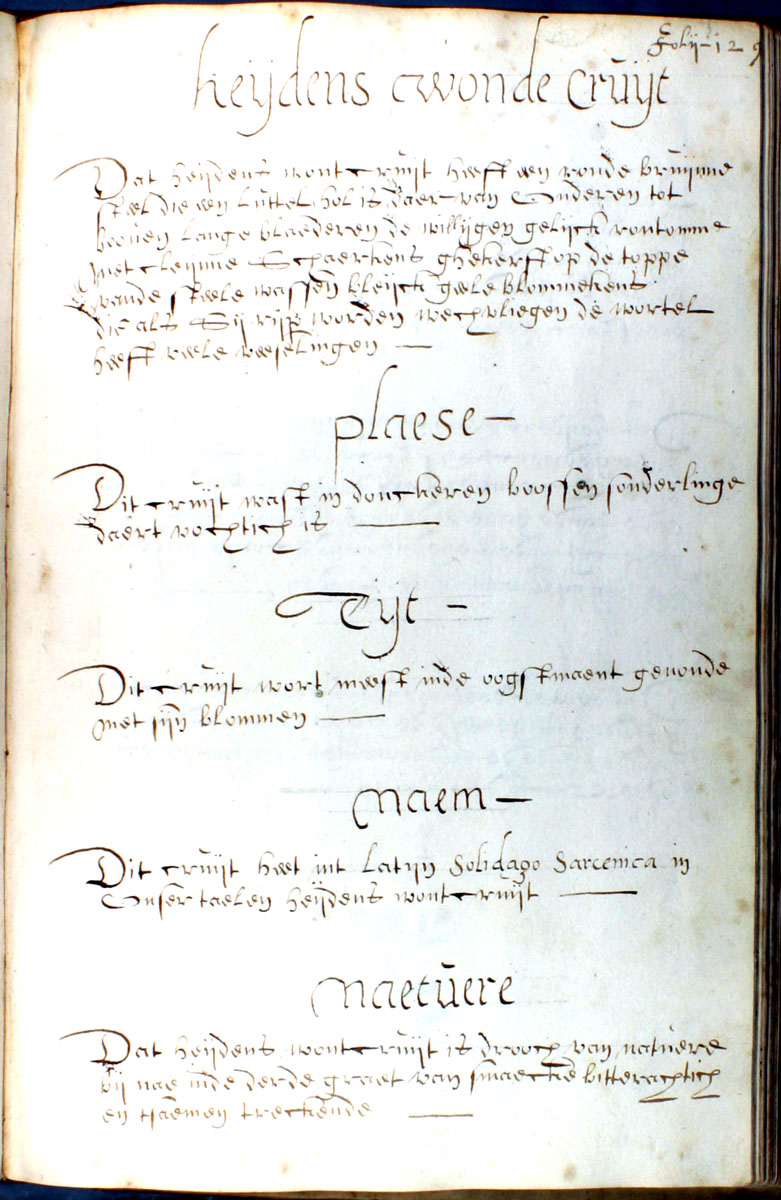 folij 129
heijdens wonde Crúijt
Dat heijdens wont crúijt heeft een ronde bruijne
steel die een luttel hol is daer van onderen tot
booúen lange blaederen de willijgen gelijck rontomme
met cleijne schaerkens ghekerft op de toppe
vande steele wassen bleijck geele blommekens
die als sij rijp worden wech vliegen de wortel
heeft veele veeselingen
plaese
Dit crúijt wast in donckeren boossen sonderlinge
daert vochtich is
Tijt
Dit crúijt wort meest inde oogstmaent geuonde
met sijn blommen
Naem
Dit crúijt heet int Latijn Solidago Sarcenica in
onser taelen heijdens wont crúijt
Naetúere
Dat heijdens wont crúijt is drooch van natúere
bij nae inde derde graet van smaecke bitterachtich
en tsaemen treckende